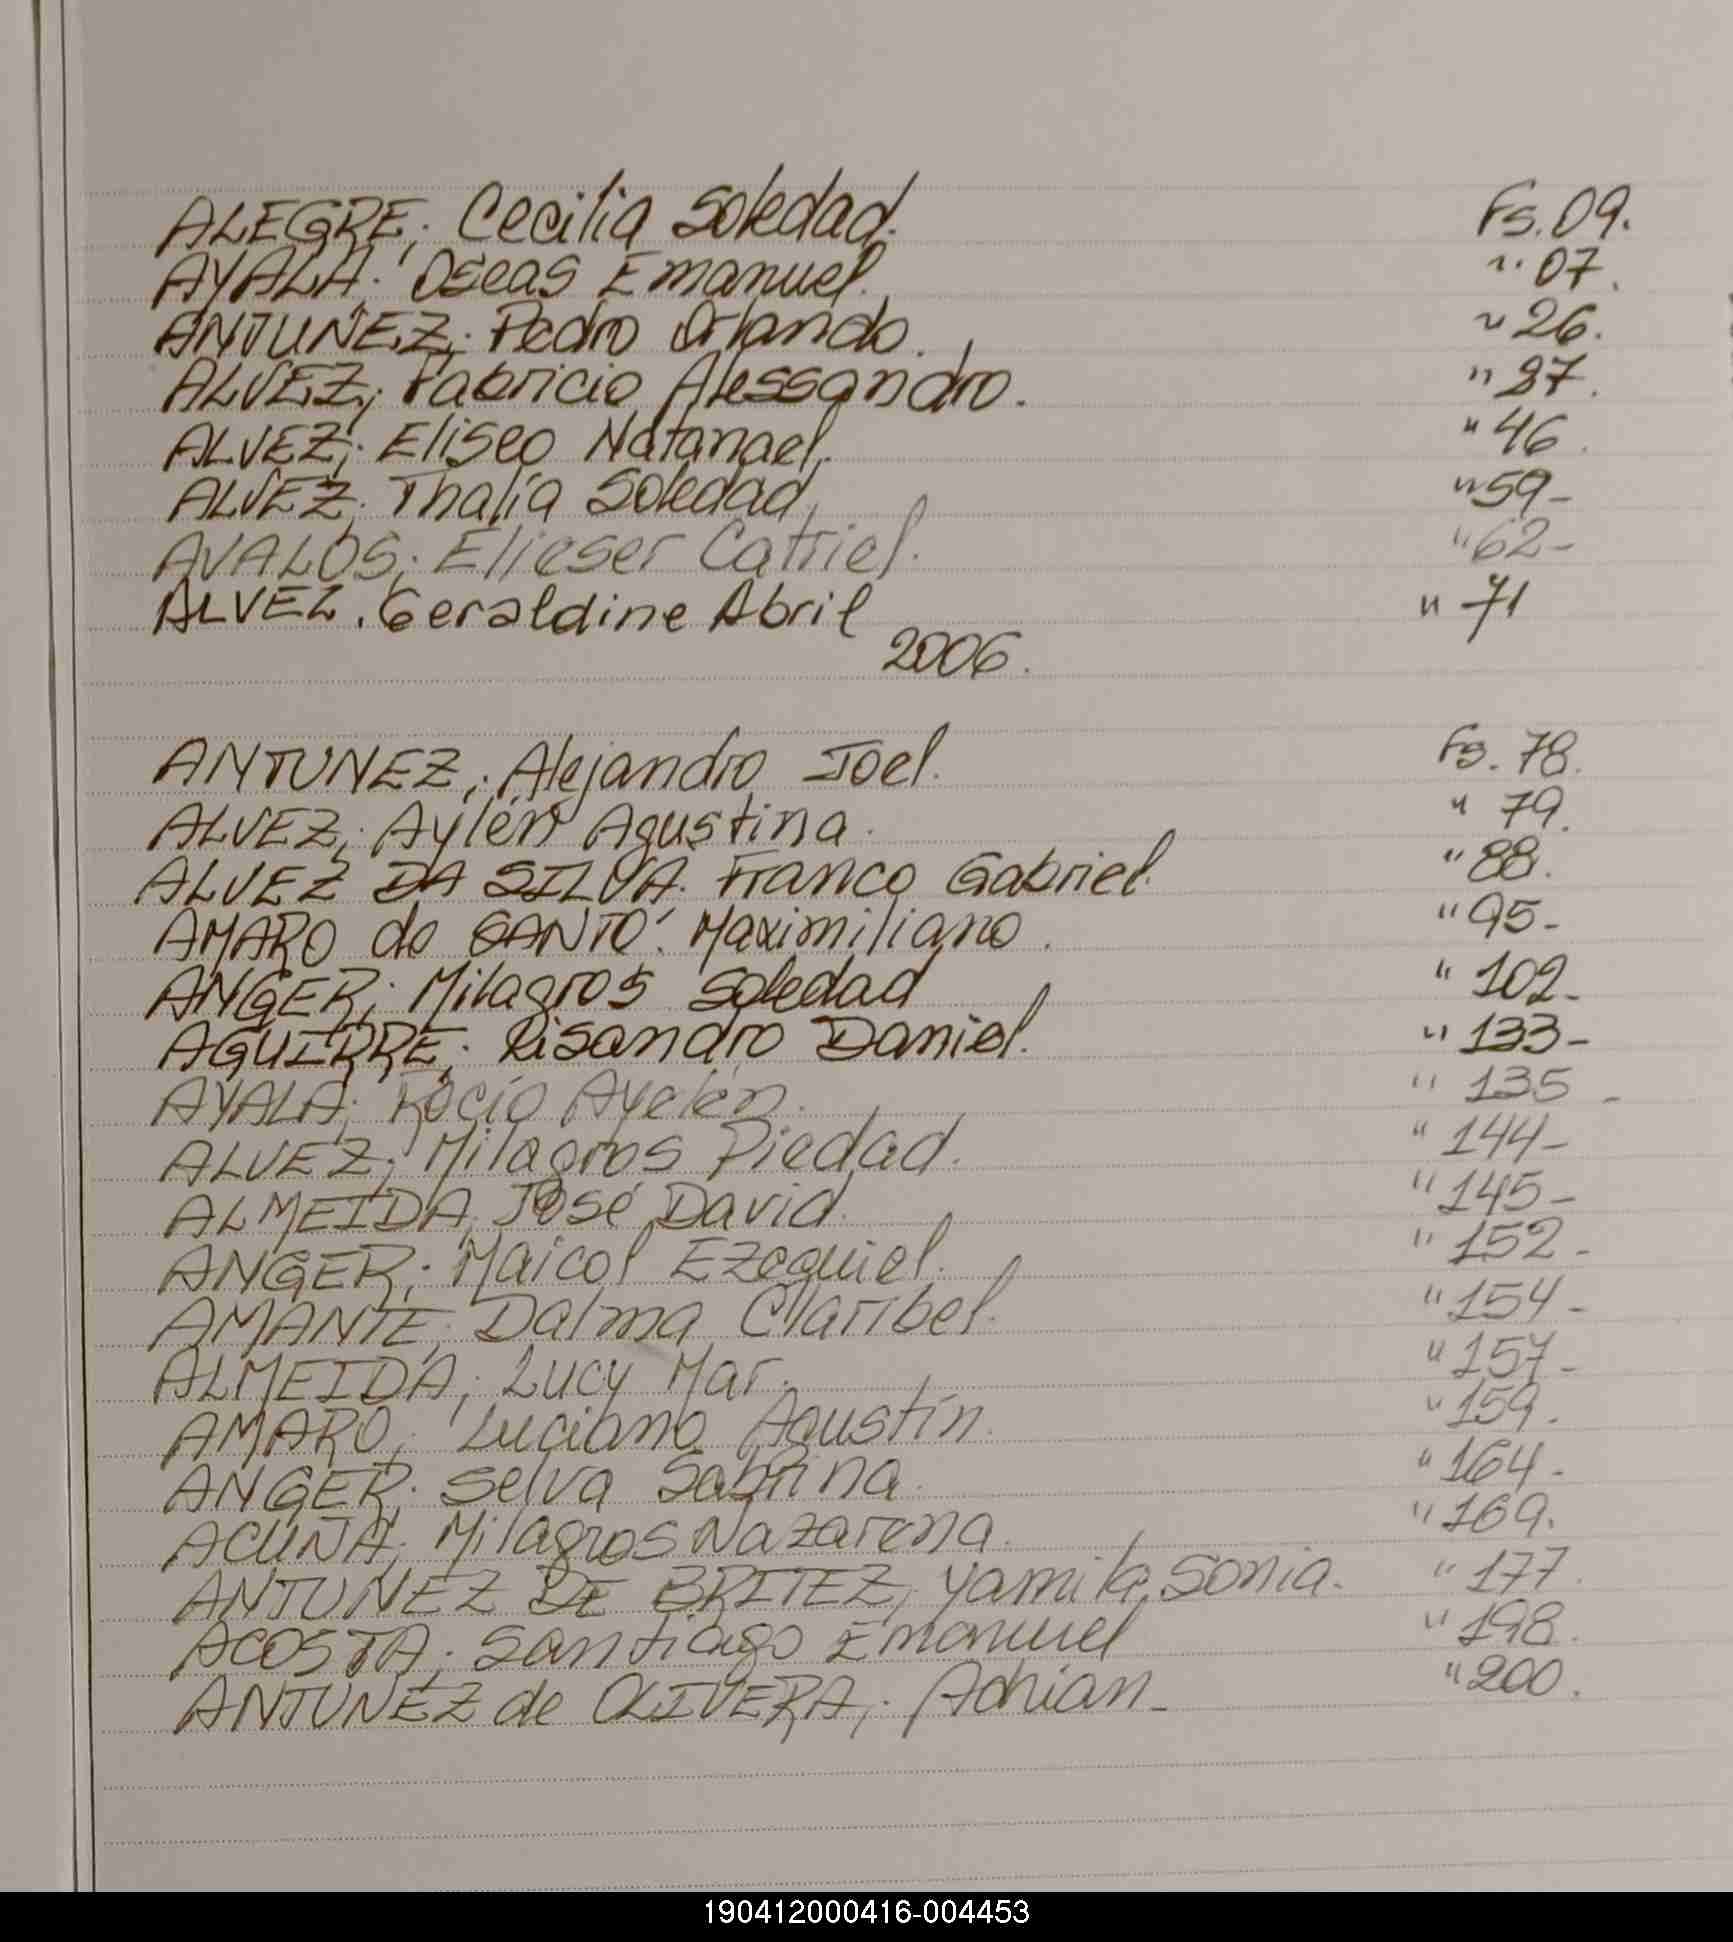 ALEGRE; Cecilia Soledad. Fs. 09.
AYALA; Oseas Emanuel. " 07.
ANTUNEZ; Pedro Orlando. " 26.
ALVEZ; Fabricio Alessandro. " 37.
ALVEZ; Eliseo Natanael. " 46.
ALVEZ; Thalía Soledad. " 59-
AVALOS; Elieser Catriel. " 62-
ALVEZ. Geraldine Abril " 71
2006.
ANTUNEZ; Alejandro Joel. Fs. 78.
ALVEZ; Aylén Agustina. " 79.
ALVEZ DA SILVA. Franco Gabriel. " 88.
AMARO do SANTO. Maximiliano. " 95-
ANGER; Milagros Soledad " 102-
AGUIRRE; Lisandro Daniel. " 133-
AYALA; Rocío Ayelén. " 135-
ALVEZ; Milagros Piedad. " 144-
ALMEIDA; José David. " 145-
ANGER; Maicol Ezequiel. " 152-
AMANTE; Dalma Claribel. " 154-
ALMEIDA; Lucy Mar. " 157-
AMARO; Luciano Agustín. " 159.
ANGER; Selva Sabrina. " 164-
ACUÑA; Milagros Nazarena. " 169.
ANTUNEZ DE BRITEZ; Yamila Sonia. " 177.
ACOSTA; Santiago Emanuel " 198.
ANTUNEZ de OLIVERA; Adrian- " 200.
190412000416-004453